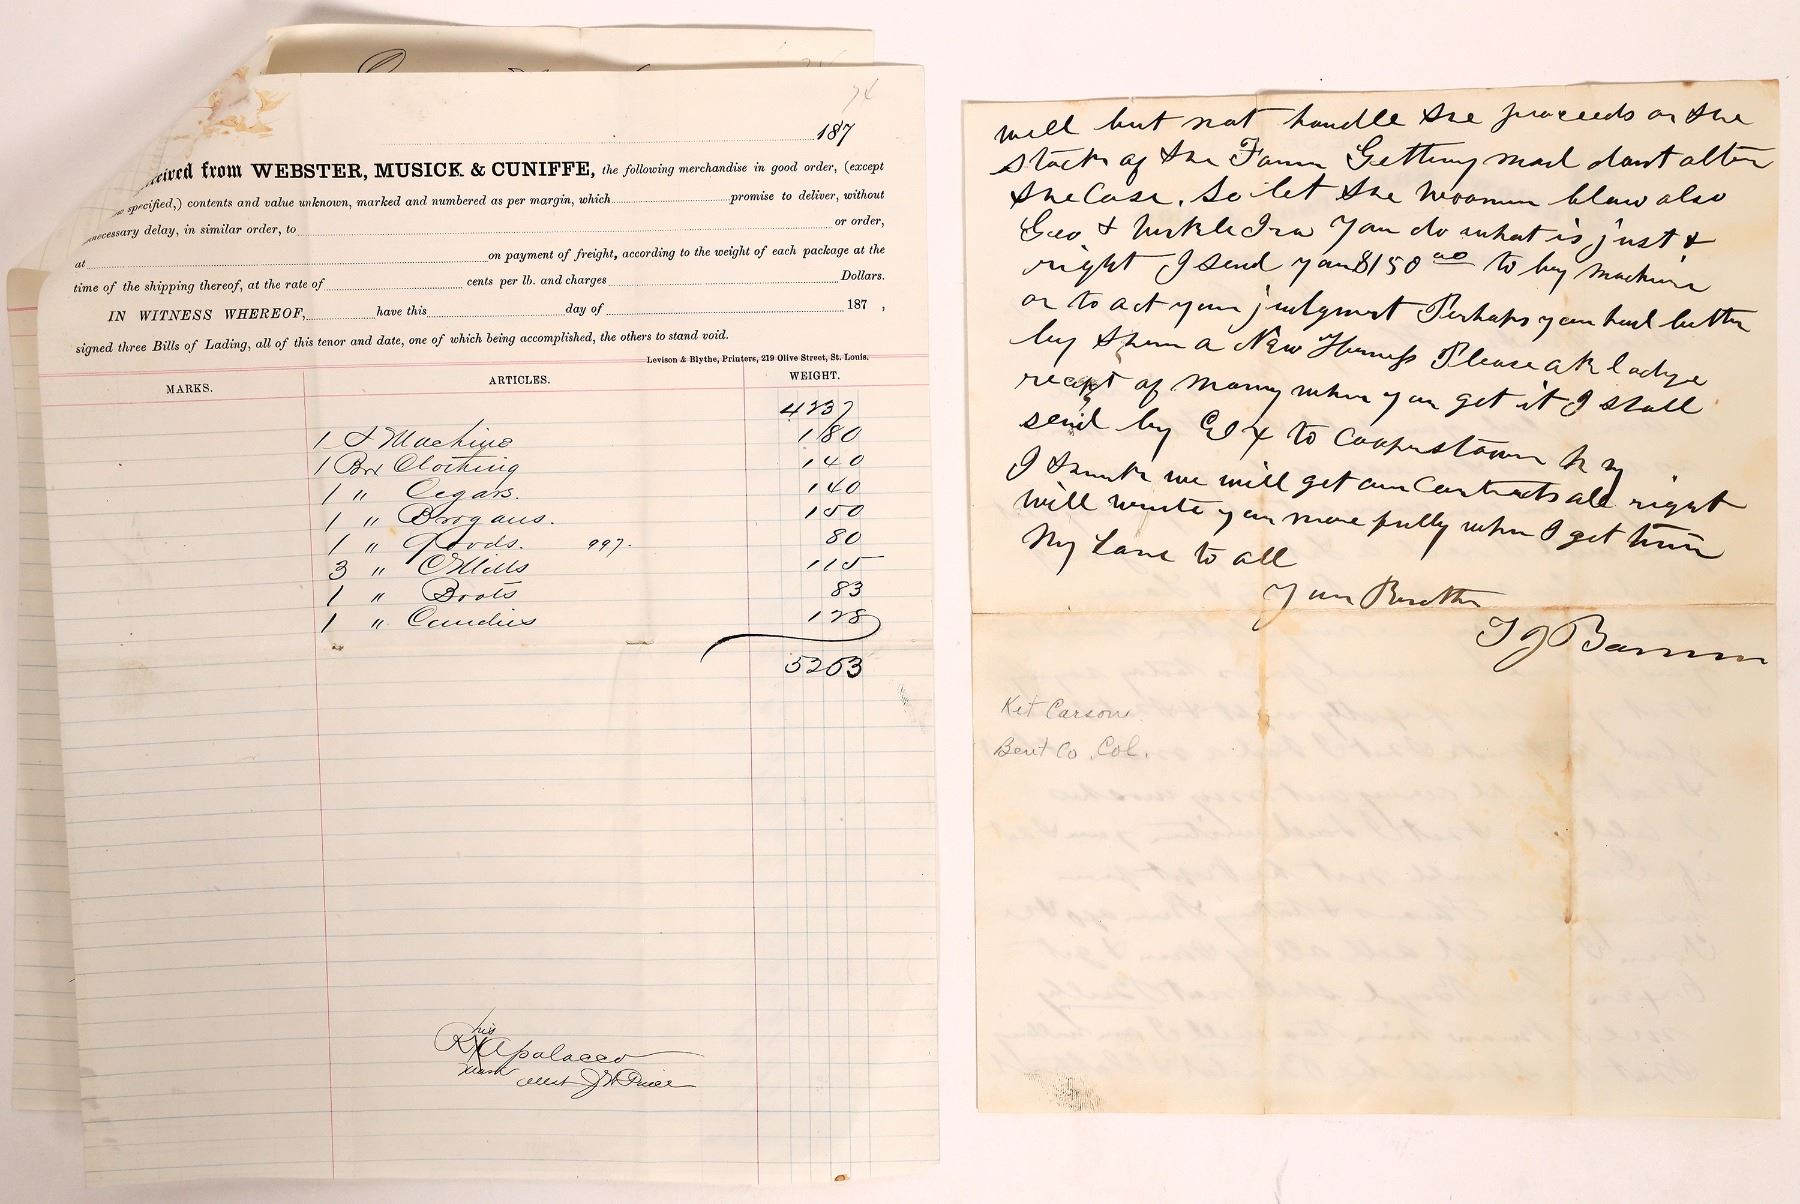 74
187
ceived from WEBSTER, MUSICK & CUNIFFE, the following merchandise in good order, (except
specified,) contents and value unknown, marked and numbered as per margin, which promise to deliver, without
necessary delay, in similar order, to or order,
at on payment of freight, according to the weight of each package at the
time of the shipping thereof, at the rate of cents per lb. and charges Dollars.
IN WITNESS WHEREOF, have this day of 187 ,
signed three Bills of Lading, all of this tenor and date, one of which being accomplished, the others to stand void.
Levison & Blythe, Printers, 219 Olive Street, St. Louis.
MARKS. ARTICLES. WEIGHT.
4237
1 S Machine 180
1 Bx Clothing 140
1 " Cegars. 140
1 " Brogans. 150
1 " Goods. 997. 80
3 " C Mills 115
1 " Boots 83
1 " Candies 128
5253
his
R X Apolacco
mark
attest J W Price
will but not handle the proceeds or the
stock of the Farm Getting mad dont alter
the Case. So let the woomin blow also
Geo & Ira You do what is just &
right I send you $150 00 to buy machine
or to act your judgment Perhaps you had better
by them a New Harness Please ak ladge
receipt of money when you get it I shall
send by Ex to Cooperstown N Y
I think we will get our Contracts all right
will write you more fully when I get time
My Love to all
Your Brother
T J Barnum
Kit Carson
Bent Co, Col.